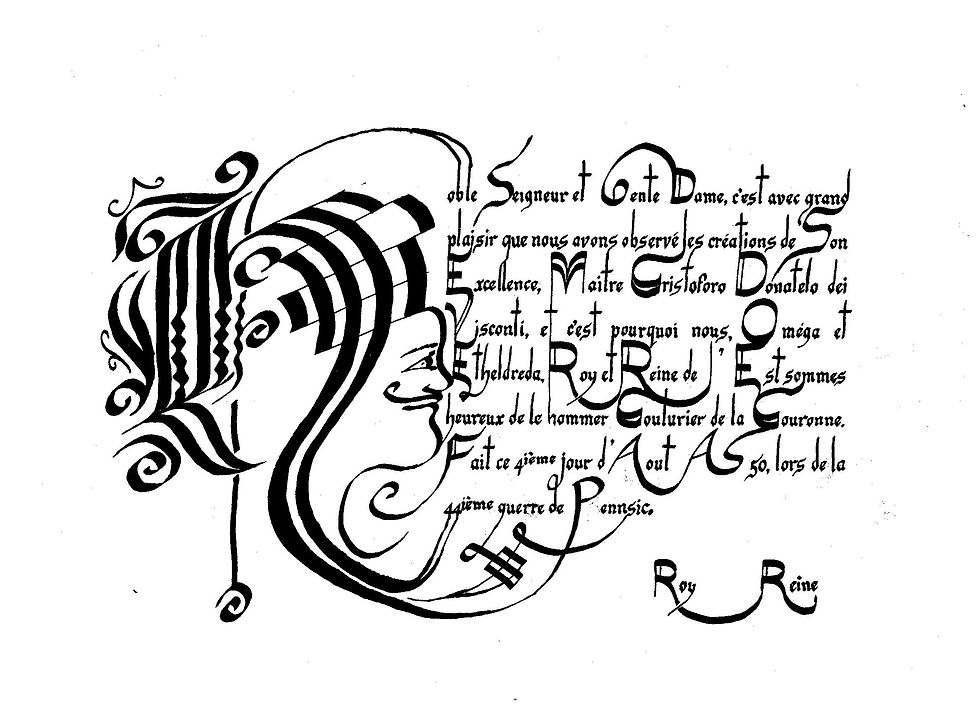 Noble Seigneur et Gente Dame, c'est avec grand
plaisir que nous avons observé les créations de Son
Excellence, Maitre Cristoforo Donatelo dei
Visconti, et c'est pourquoi nous, Oméga et
Etheldreda, Roy et Reine de l'Est sommes
heureux de le nommer Couturier de la Couronne.
Fait ce 4ième jour d'Aout AS 50, lors de la
44ième guerre de Pennsic.
Roy Reine